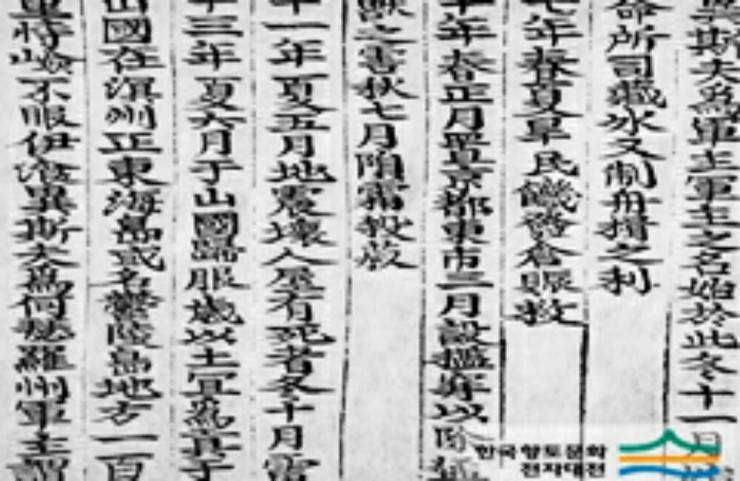 異斯夫爲軍主軍主之名始於此冬十一月始
命所司藏氷又制舟楫之利
七年春夏旱民饑發倉賑救
十年春正月置京都東市三月設檻穽以除猛
獸之害秋七月隕霜殺菽
十一年夏五月地震壞人屋有死者冬十月雷
十三年夏六月于山國歸服歲以土宜爲貢于
山國在溟州正東海島或名鬱陵島地方一百
里恃嶮不服伊湌異斯夫爲何瑟羅州軍主謂
한국향토문화
전자대전